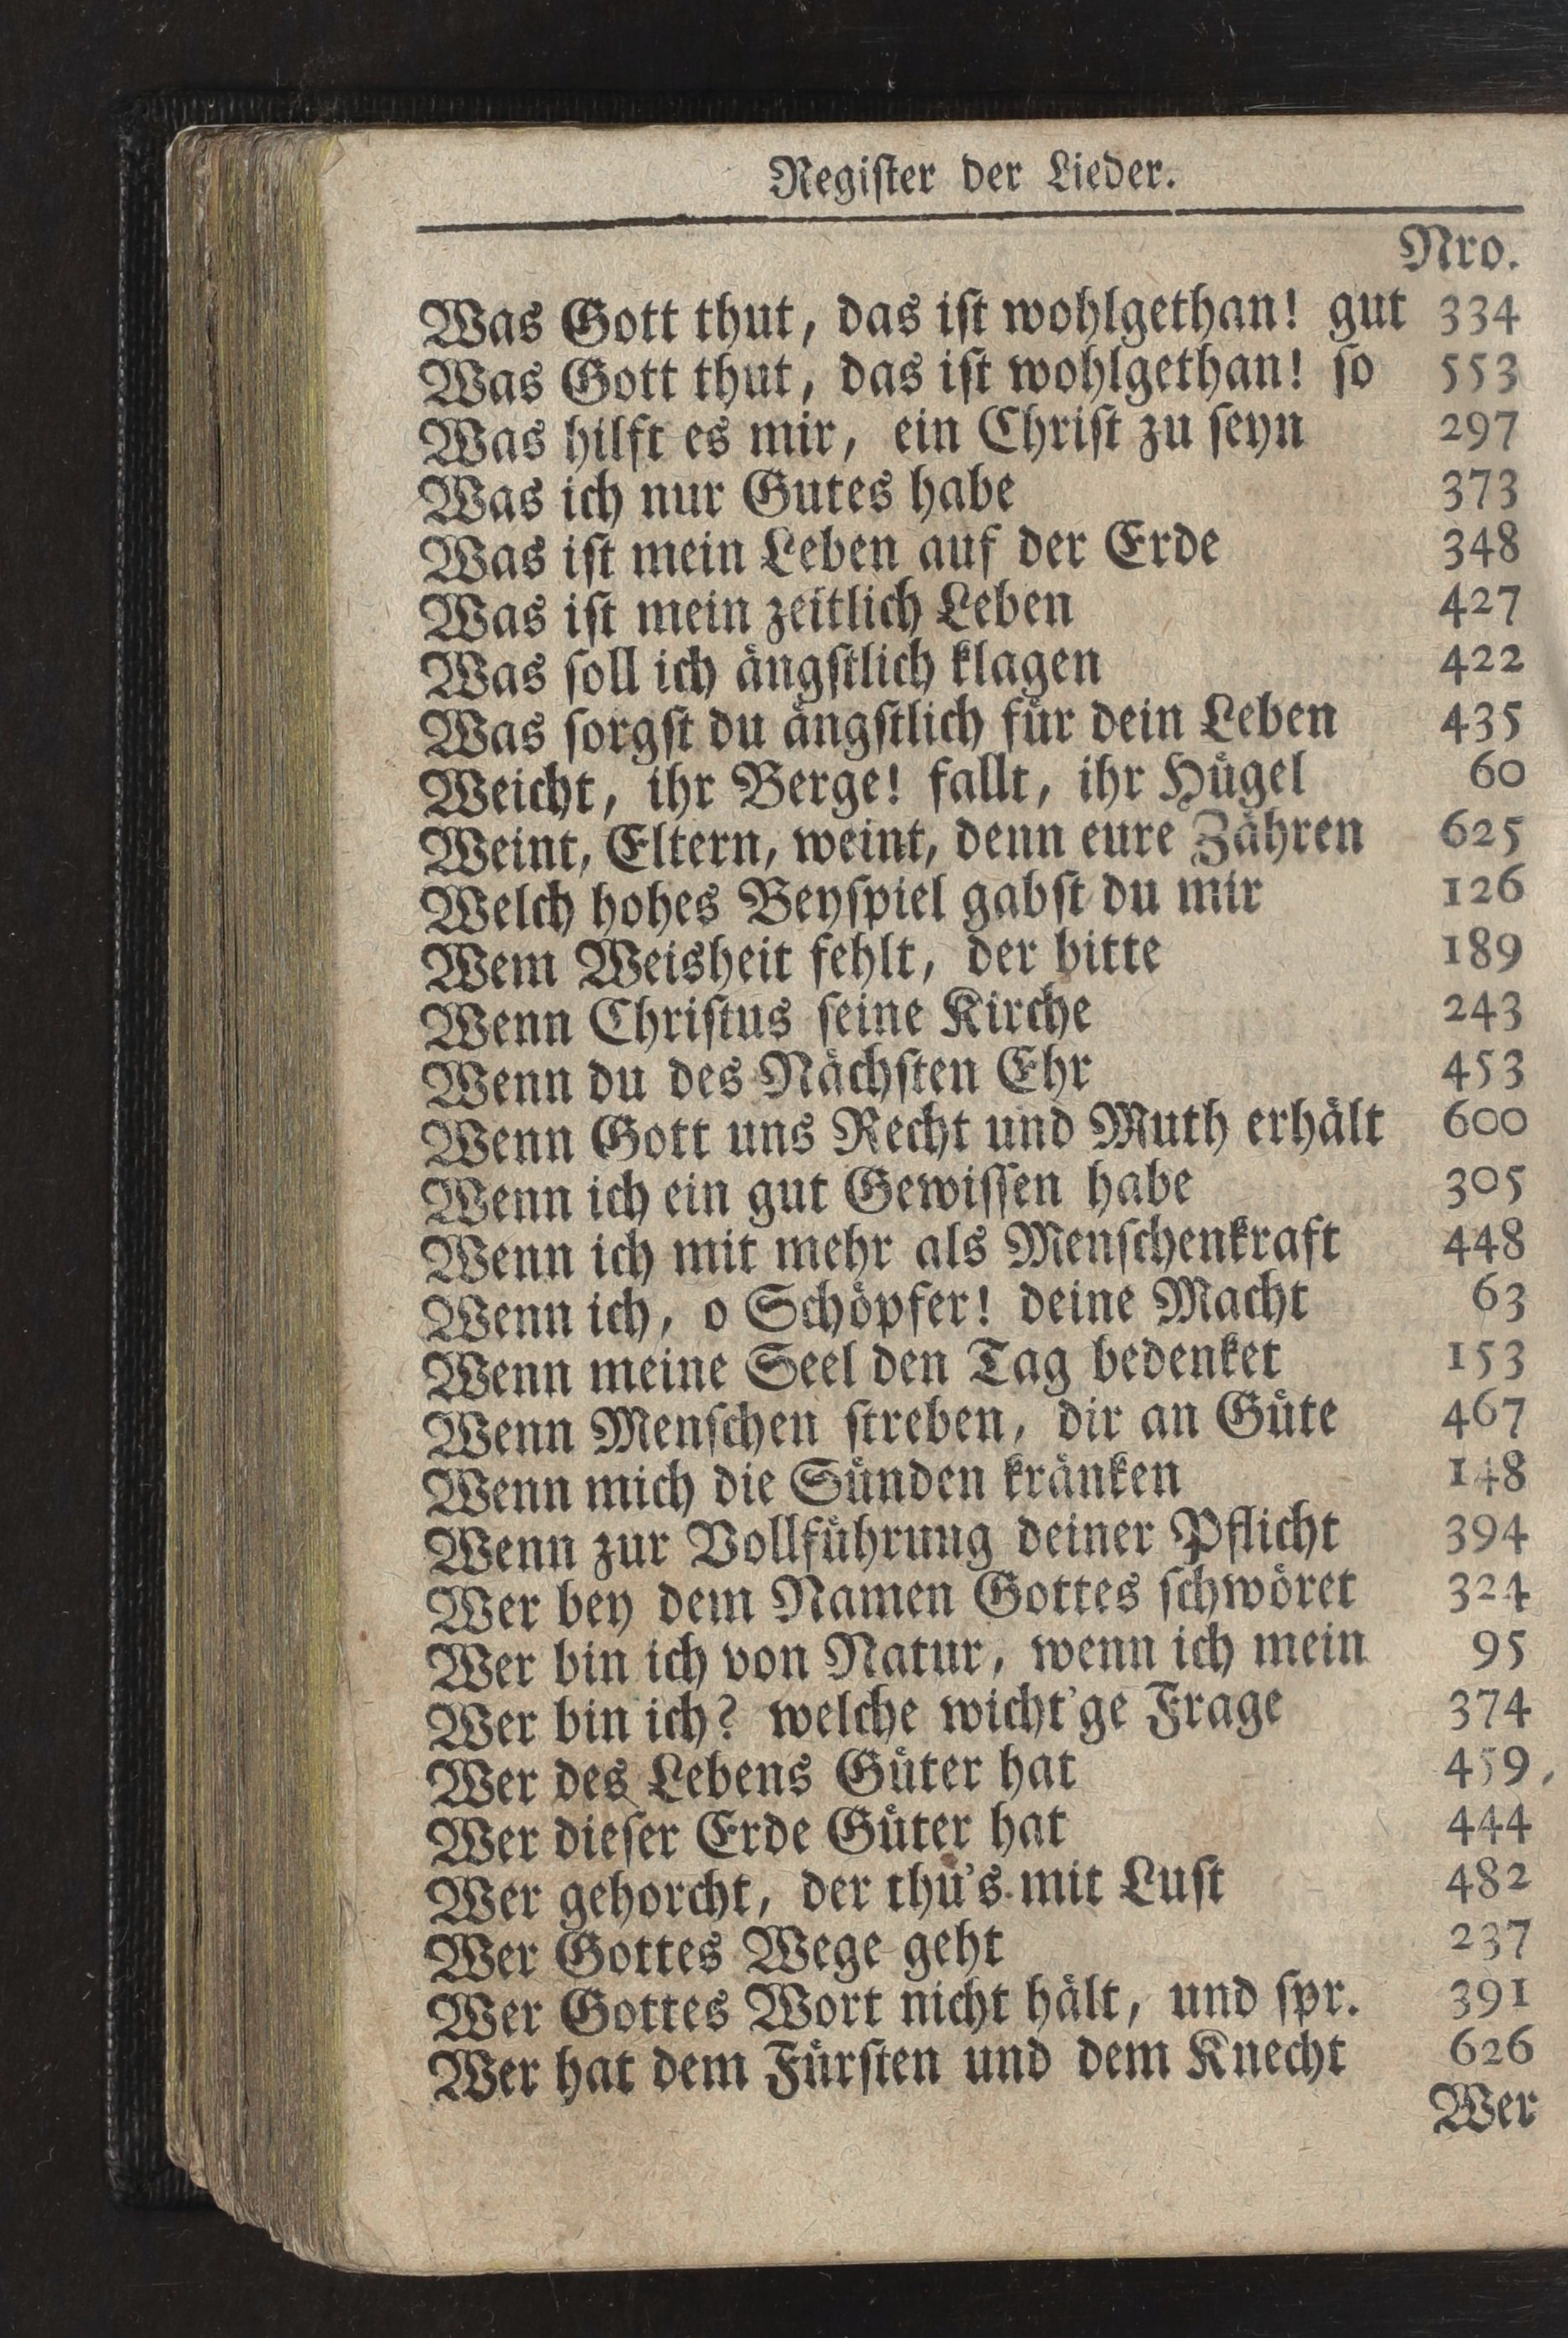 Regiſter der Lieder.
Nro.
Was Gott thut, das iſt wohlgethan! gut 334
Was Gott thut, das iſt wohlgethan! ſo 553
Was hilft es mir, ein Chriſt zu ſeyn 297
Was ich nur Gutes habe 373
Was iſt mein Leben auf der Erde 348
Was iſt mein zeitlich Leben 427
Was ſoll ich ängſtlich klagen 422
Was ſorgſt du ängſtlich für dein Leben 435
Weicht, ihr Berge! fallt, ihr Hügel 60
Weint, Eltern, weint, denn eure Zähren 625
Welch hohes Beyſpiel gabſt du mir 126
Wem Weisheit fehlt, der bitte 189
Wenn Chriſtus ſeine Kirche 243
Wenn du des Nächſten Ehr 453
Wenn Gott uns Recht und Muth erhält 600
Wenn ich ein gut Gewiſſen habe 305
Wenn ich mit mehr als Menſchenkraft 448
Wenn ich, o Schöpfer! deine Macht 63
Wenn meine Seel den Tag bedenket 153
Wenn Menſchen ſtreben, dir an Güte 467
Wenn mich die Sünden kränken 148
Wenn zur Vollführung deiner Pflicht 394
Wer bey dem Namen Gottes ſchwöret 324
Wer bin ich von Natur, wenn ich mein 95
Wer bin ich? welche wicht'ge Frage 374
Wer des Lebens Güter hat 459
Wer dieſer Erde Güter hat 444
Wer gehorcht, der thu's mit Luſt 482
Wer Gottes Wege geht 237
Wer Gottes Wort nicht hält, und ſpr. 391
Wer hat dem Fürſten und dem Knecht 626
Wer